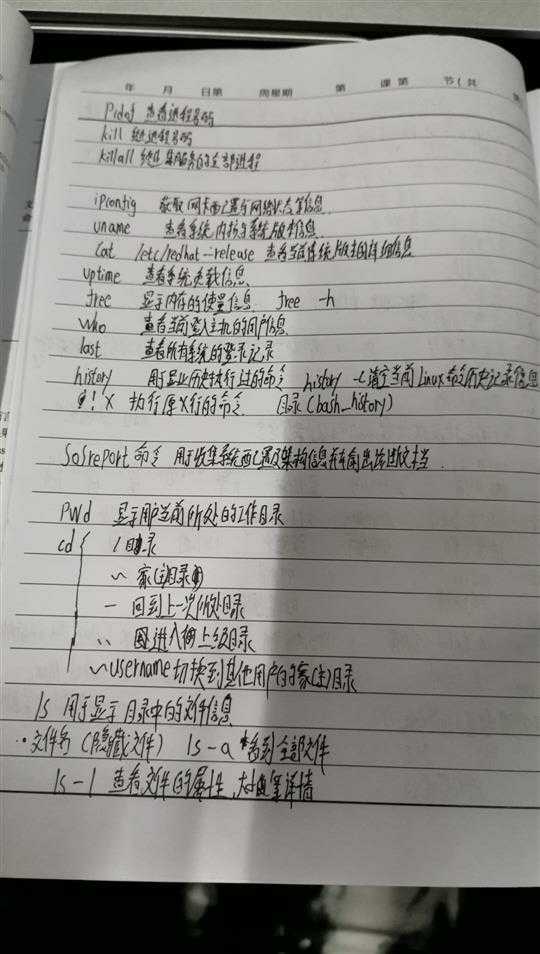 年 月 日第 周星期 第 课第 节(共
Pidof 查看进程号码
kill 终进程号码
killall 终止某服务的全部进程
ipconfig 获取网卡配置与网络状态等信息
uname 查看系统内核与系统版本信息
Cat /etc/redhat-release 查看当前系统版本的详细信息
uptime 查看系统负载信息
free 显示内存的使量信息 free -h
Who 查看当前登入主机的用户信息
last 查看所有系统的登录记录
history 用于显示历史执行过的命令 history -c 清空当前Linux命令历史记录信息
! X 执行厚X行的命令 目录(bash_history)
Sosreport 命令 用于收集系统配置及架构信息并输出诊断文档
Pwd 显示用户当前所处的工作目录
cd / 目录
~ 家(主)目录
- 回到上一次所处目录
.. 进入上级目录
~username 切换到其他用户的家(主)目录
ls 用于显示目录中的文件信息
.文件名 (隐藏文件) ls -a 看到全部文件
ls -l 查看文件的属性、大小等详情